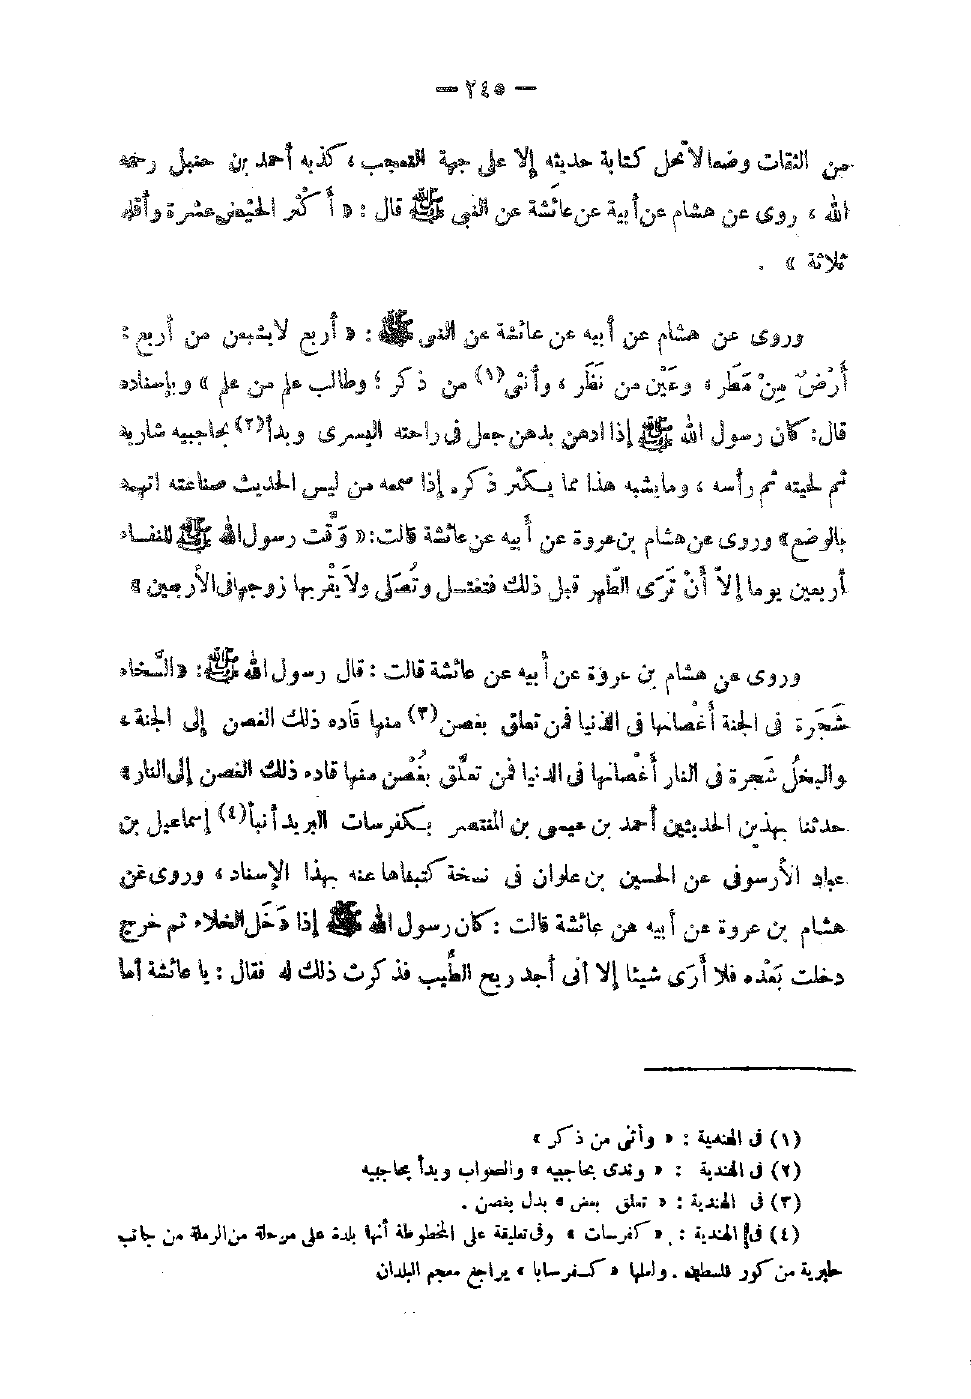 — ٢٤٥ —
من الثقات وضعا لا تحل كتابة حديثه إلا على جهة التعجب ، كذبه أحمد بن حنبل رحمه
الله ، روى عن هشام عن أبية عن عائشة عن النبى ﷺ قال : « أَكْثر الحيْض عشرة وأقله
ثلاثة » .
وروى عن هشام عن أبيه عن عائشة عن النبى ﷺ : « أربع لا يشبعن من أربع :
أَرْضٌ مِنْ مَطَر ، وعَيْن من نَظَر ، وأنثى (١) من ذكر ؛ وطالب علم من علم » وبإسناده
قال : كان رسول الله ﷺ إذا ادهن بدهن جعل فى راحته اليسرى وبدأ (٢) بحاجبيه شاربه
ثم لحيته ثم رأسه ، وما يشبه هذا مما يكثر ذكره إذا سمعه من ليس الحديث صناعته اتهمه
بالوضع » وروى عن هشام بن عروة عن أبيه عن عائشة قالت : « وَقَّت رسول الله ﷺ للنفساء
أربعين يوما إلاّ أَنْ تَرَى الطّهر قبل ذلك فتغتسل وتُصَلى ولاَ يَقْربها زوجها فى الأربعين »
وروى عن هشام بن عروة عن أبيه عن عائشة قالت : قال رسول الله ﷺ : « السَّخاء
شَجَرة فى الجنة أَغْصانها فى الدنيا فمن تعلق بغصن (٣) منها قَاده ذلك الغصن إلى الجنة ،
والبخلُ شَجرة فى النار أَغْصانها فى الدنيا فمن تعلّق بغُصْن منها قاده ذلك الغصن إلى النار »
حدثنا بهذين الحديثين أحمد بن عيسى بن المنتصر بكفرسات البريد أنبأ (٤) إسماعيل بن
عباد الأرسوفى عن الحسين بن علوان فى نسخة كتبناها عنه بهذا الإسناد ، وروى عن
هشام بن عروة عن أبيه عن عائشة قالت : كان رسول الله ﷺ إذا دَخَل الخلاء ثم خرج
دخلت بَعْده فلا أَرَى شيئا إلا أنى أجد ريح الطِّيب فذكرت ذلك له فقال : يا عائشة أما
(١) فى الهندية : « وأثى من ذكر »
(٢) فى الهندية : « وندى بحاجبيه » والصواب وبدأ بحاجبيه
(٣) فى الهندية : « تعلق بعض » بدل بغصن .
(٤) فى الهندية : « كفرسات » وفى تعليقة على المخطوطة أنها بلدة على مرحلة من الرملة من جانب
طبرية من كور فلسطين . ولعلها « كفرسابا » يراجع معجم البلدان